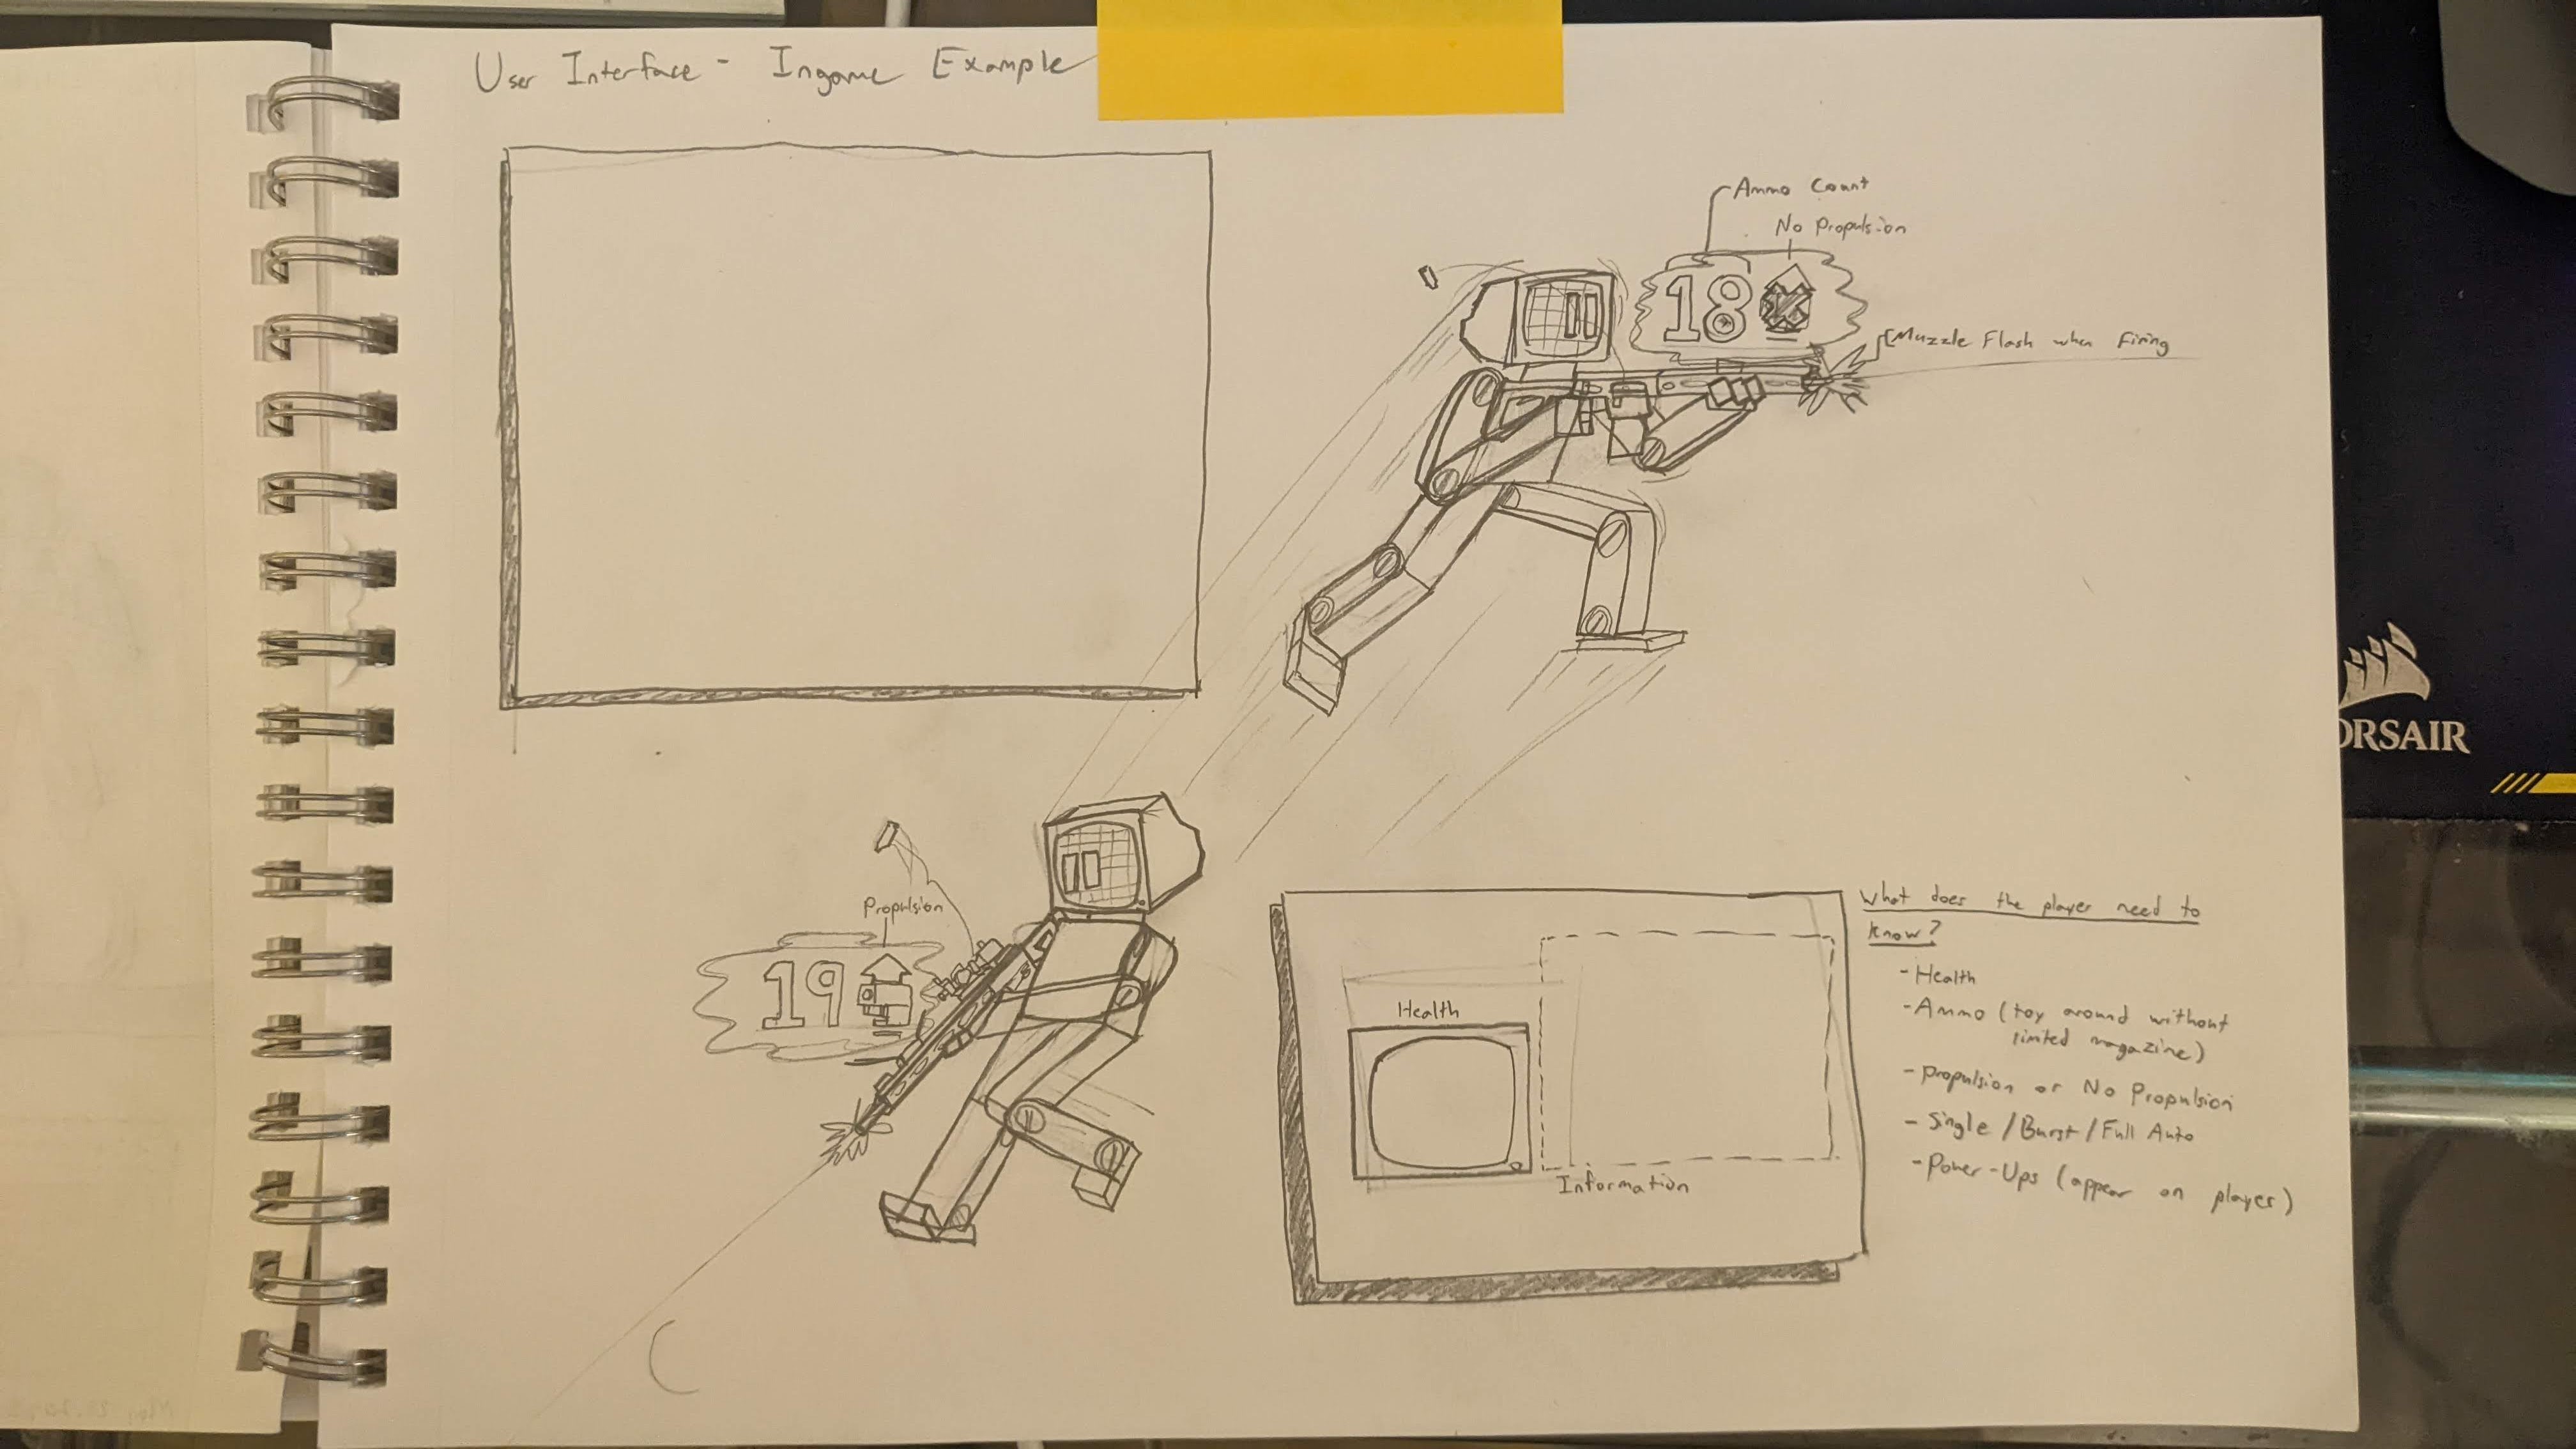 User Interface - Ingame Example
Ammo Count
No Propulsion
18
Muzzle Flash when Firing
Propulsion
19
Health
Information
What does the player need to
know?
- Health
- Ammo (toy around without
limited magazine)
- Propulsion or No Propulsion
- Single / Burst / Full Auto
- Power-Ups (appear on player)
ORSAIR